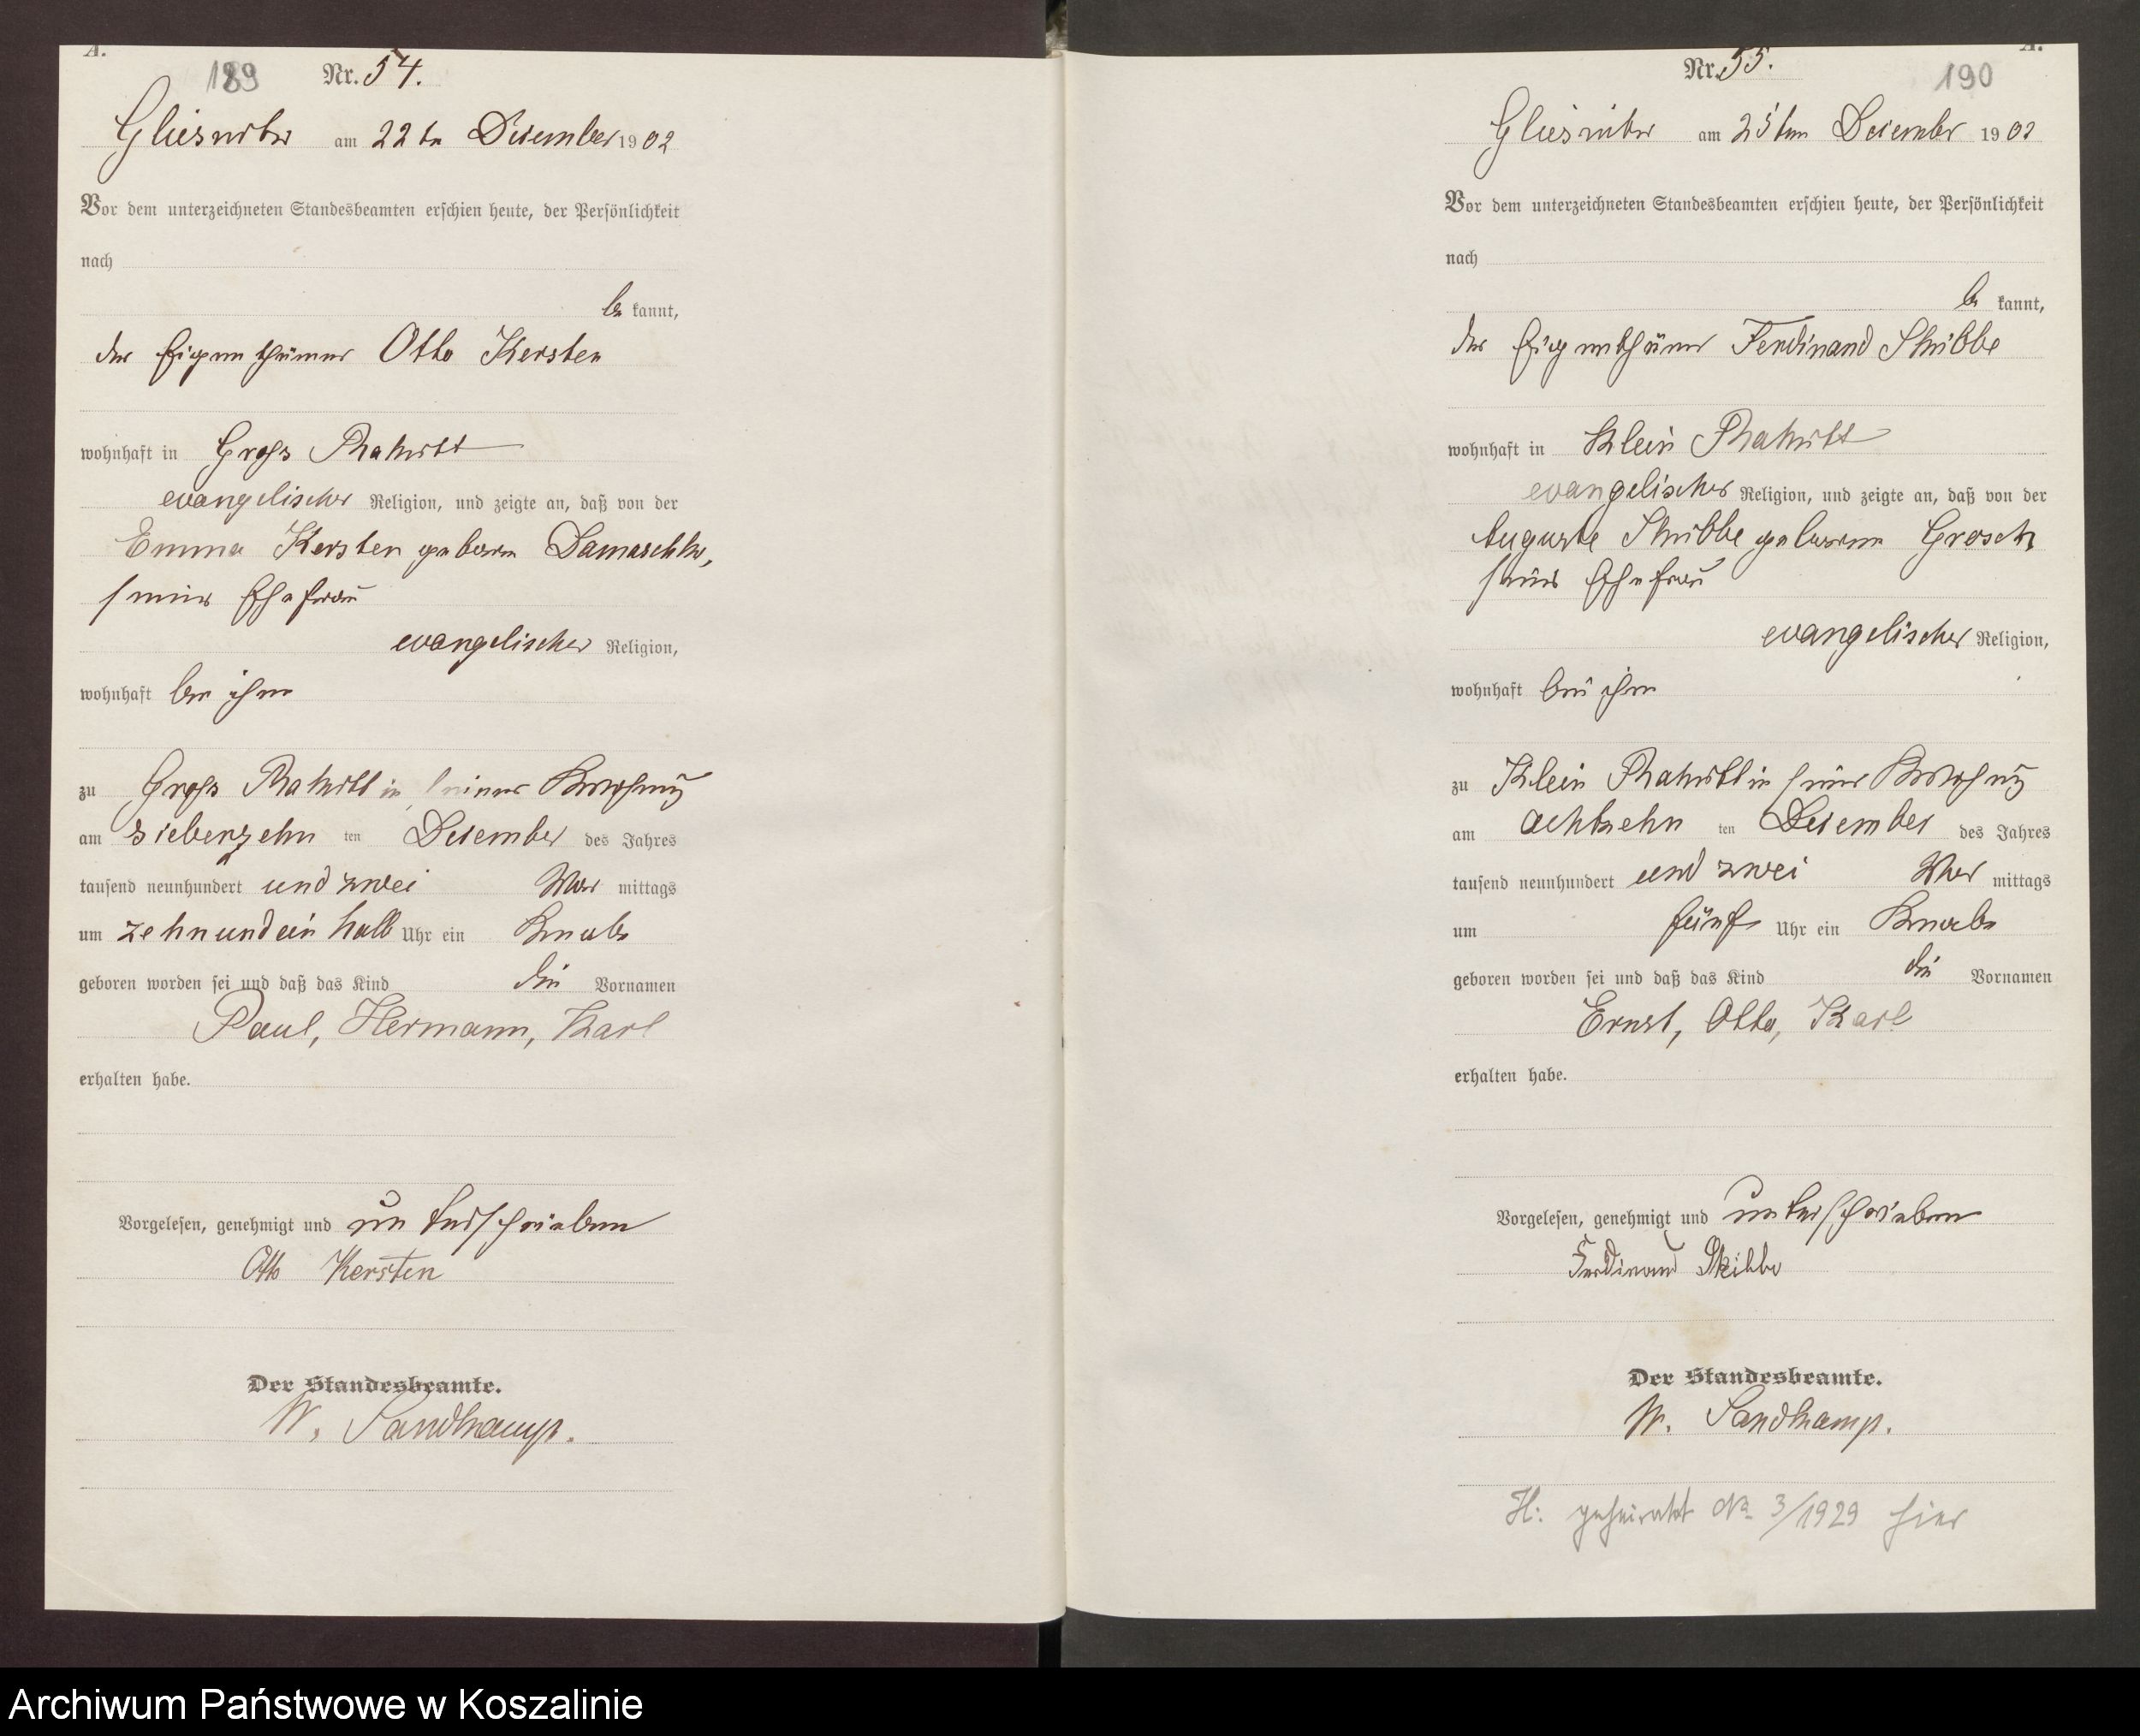 A.
189 Nr. 54.
Gliesnitz am 22ten Dezember 1902
Vor dem unterzeichneten Standesbeamten erschien heute, der Persönlichkeit
nach
be kannt,
der Eigenthümer Otto Kersten
wohnhaft in Gross Rakitt
evangelischer Religion, und zeigte an, daß von der
Emma Kersten geborene Damaschke,
seiner Ehefrau
evangelischer Religion,
wohnhaft bei ihm
zu Gross Rakitt in seiner Wohnung
am siebenzehn ten Dezember des Jahres
tausend neunhundert und zwei Vor mittags
um zehnundein halb Uhr ein Knabe
geboren worden sei und daß das Kind die Vornamen
Paul, Hermann, Karl
erhalten habe.
Vorgelesen, genehmigt und unterschrieben
Otto Kersten
Der Standesbeamte.
W. Sandkamp.
A.
Nr. 55. 190
Gliesnitz am 23ten Dezember 1902
Vor dem unterzeichneten Standesbeamten erschien heute, der Persönlichkeit
nach
be kannt,
der Eigenthümer Ferdinand Skibbe
wohnhaft in Klein Rakitt
evangelischer Religion, und zeigte an, daß von der
Auguste Skibbe geborene Grosch
seiner Ehefrau
evangelischer Religion,
wohnhaft bei ihm
zu Klein Rakitt in seiner Wohnung
am achtzehn ten Dezember des Jahres
tausend neunhundert und zwei Vor mittags
um fünf Uhr ein Knabe
geboren worden sei und daß das Kind die Vornamen
Ernst, Otto, Karl
erhalten habe.
Vorgelesen, genehmigt und unterschrieben
Ferdinand Skibbe
Der Standesbeamte.
W. Sandkamp.
H: geheiratet No 3/1929 hier
Archiwum Państwowe w Koszalinie